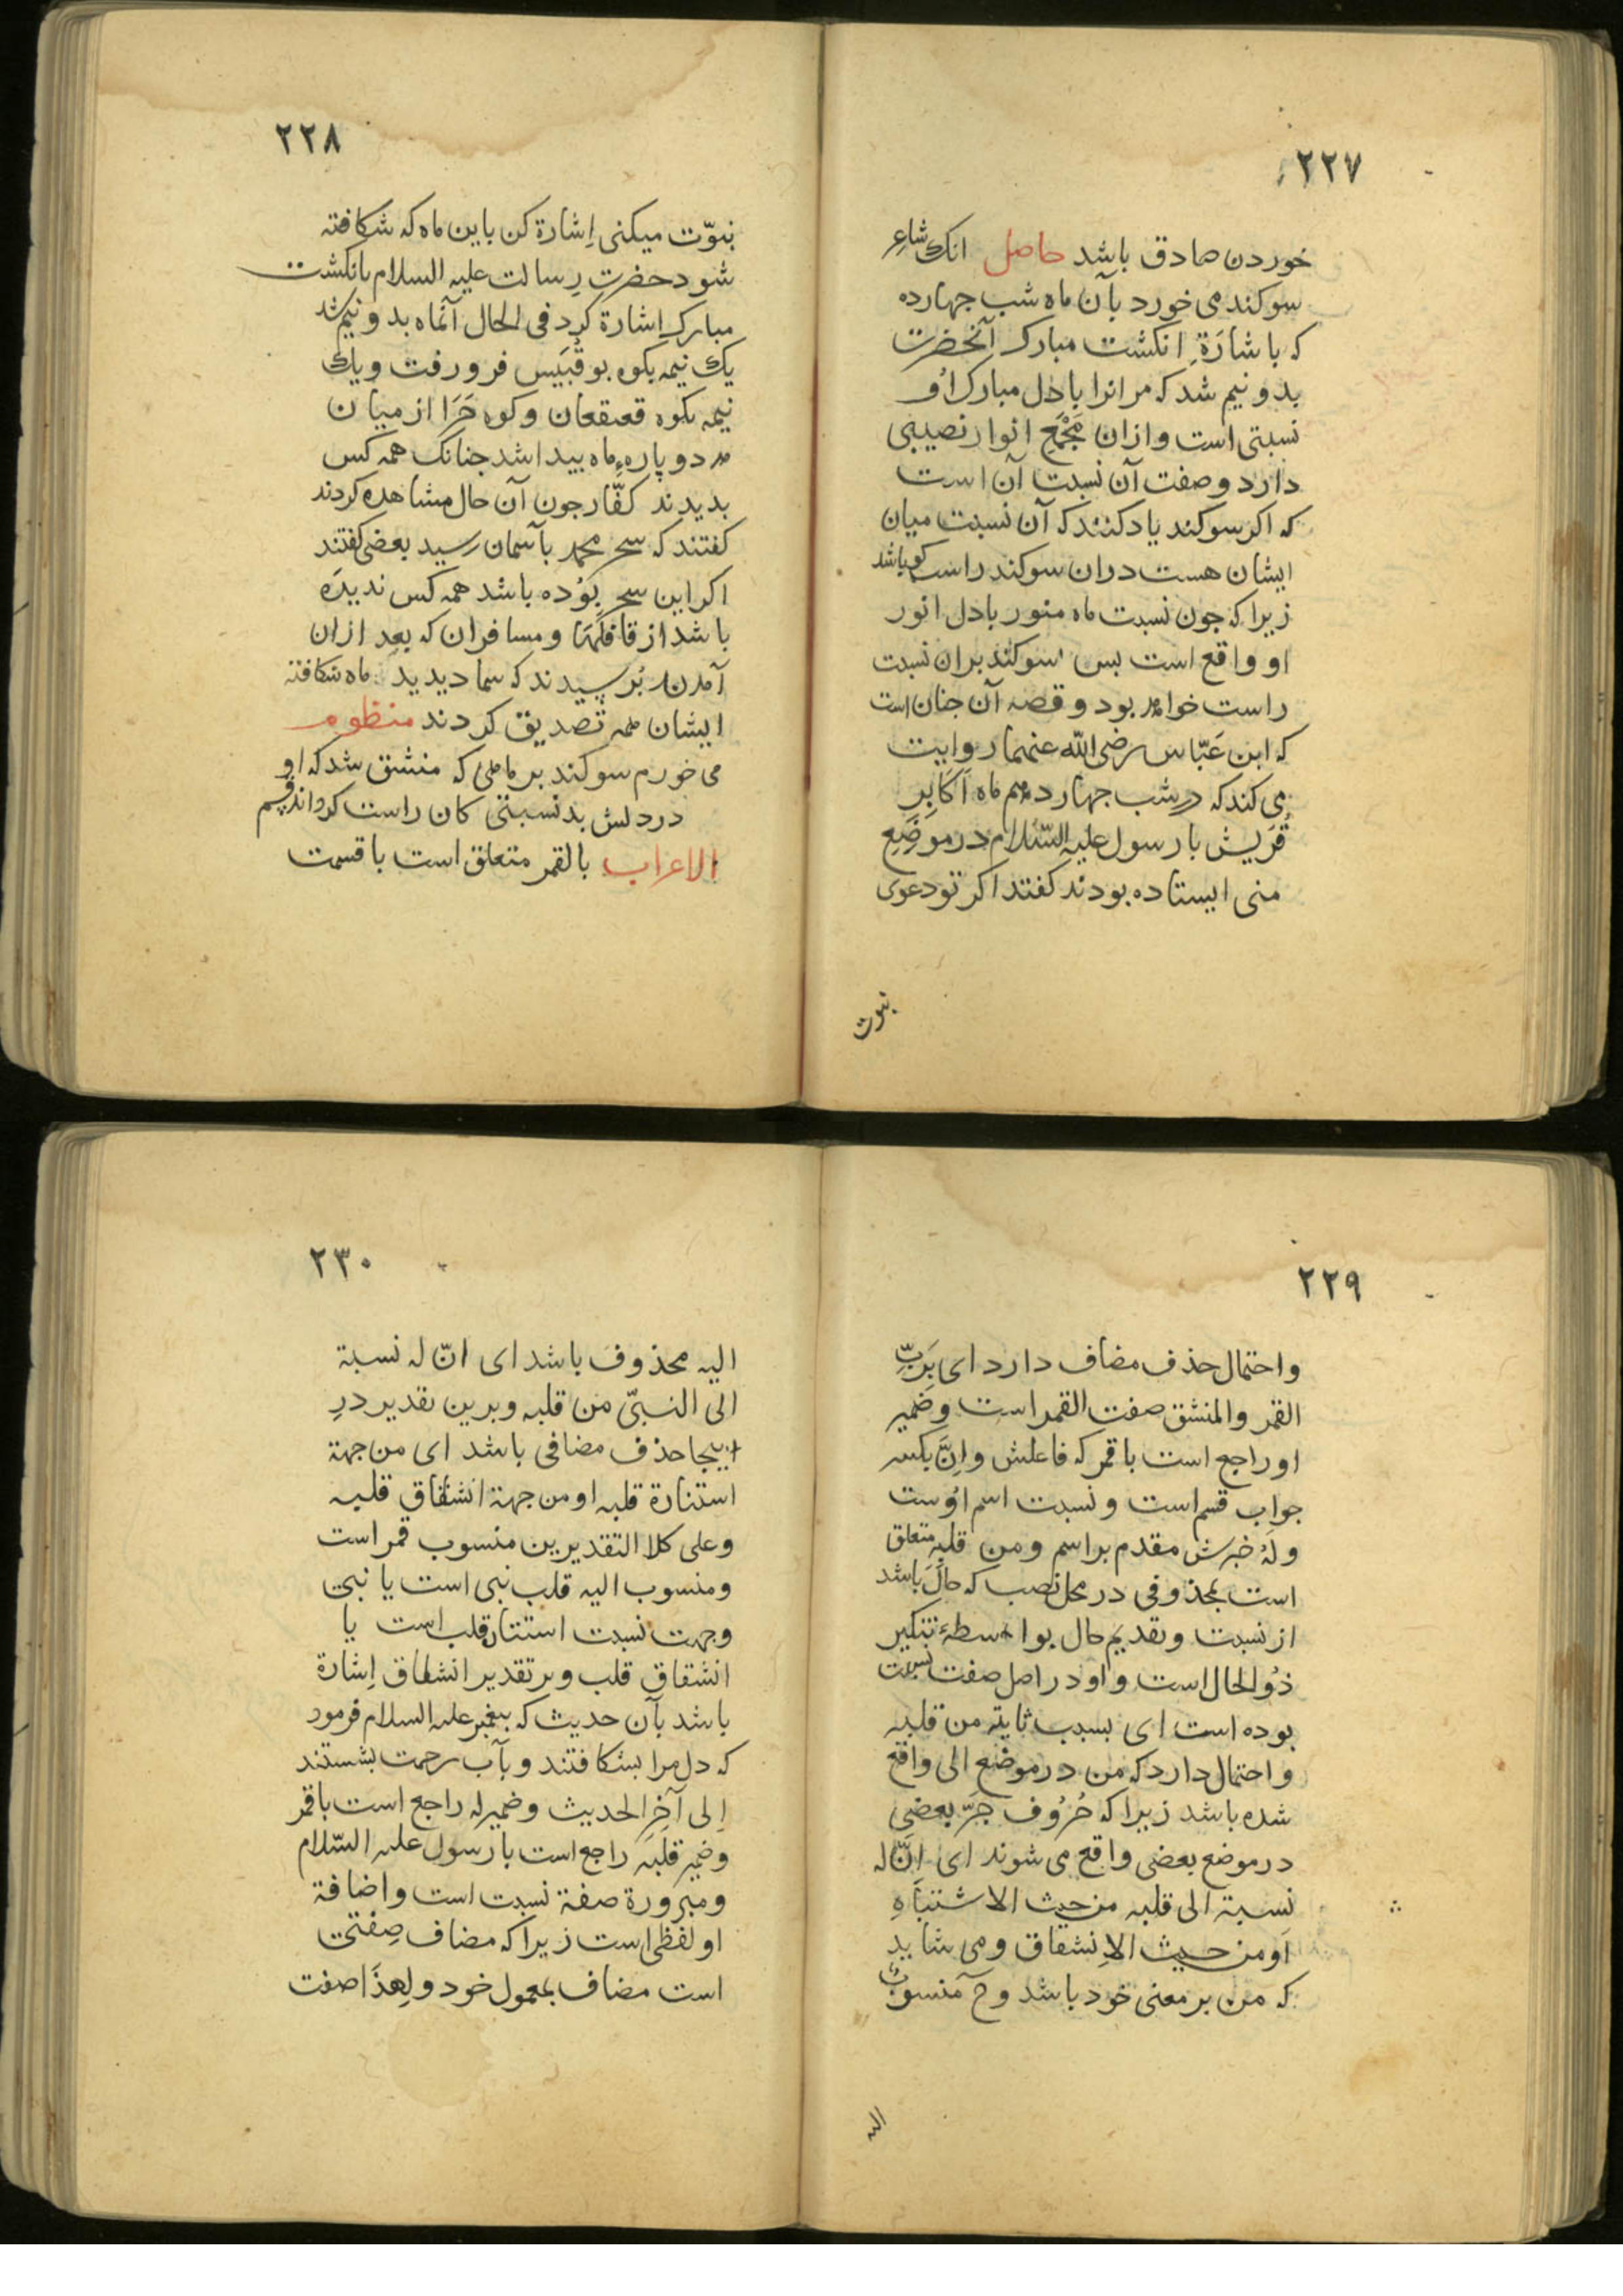 ٢٢٧
خوردن صادق باشد حاصل انک شاعِر
سوکند می خورد بآن ماه شب جهارده
که باشارَةِ انکشت مبارک آنحضرت
بدو نیم شد که مرانرا بادل مبارک اُو
نسبتی است وازان مَجْمَعِ انوار نصیبی
دارد وصفت آن نسبت آن است
که اکر سوکند یاد کنند که آن نسبت میان
ایشان هست دران سوکند راست کو باشد
زیرا که جون نسبت ماه منور بادل انور
او واقع است بس سوکند بران نسبت
راست خواهد بود وقصه آن جنان است
که ابن عَبّاس رضی الله عنهما روایت
می کند که در شب جهاردهم ماه اَکَابِرِ
قُرَیش با رسول علیه السّلام در موضِعِ
منی ایستاده بودند کفتند اکر تو دعوی
نبوت
٢٢٨
نبوّت میکنی اِشارة کن باین ماه که شکافته
شود حضرتِ رِسالت علیه السلام بانکشت
مبارک اِشارة کرد فی الحال آنماه بدو نیم شد
یك نیمه بکوه بو قُبَیَس فرو رفت ویك
نیمه بکوه قعیقعان وکوه حَرَا از میان
هر دو پارهٔ ماه بیدا شد جنانک همه کس
بدیدند کفّار جون آن حال مشاهده کردند
کفتند که سحر محمد بآسمان رسید بعضی کفتند
اکر این سحر بُوده باشد همه کس ندیدَه
باشد از قافلَهَا ومسافران که بعد ازان
آمدن بُرسیدند که شما دیدید ماه شکافته
ایشان همه تصدیق کردند منظوم
می خورم سوکند بر ماهی که منشق شد که او
در دلش بد نسبتی کان راست کرداند قسم
الاعراب بالقمر متعلق است باقسمت
٢٢٩
واحتمال حذف مضاف دارد ای بِرَبِّ
القمر والمنشق صفت القمر است وضمیر
او راجع است باقمر که فاعلش واِنَّ بکسر
جواب قسم است ونسبت اسم اُوست
ولَهُ خبرش مقدم بر اسم ومن قلبه متعلق
است بمحذوفی در محل نصب که حالَ باشد
از نسبت وتقدیم حال بواسطهٔ تنکیر
ذوُ الحال است واو در اصل صفت نسبت
بوده است ای بسبب ثابتة من قلبه
واحتمال دارد که من در موضع الی واقع
شده باشد زیرا که حُرُوف جَرّ بعضی
در موضع بعضی واقع می شوند ای اِنَّ له
نسبة الی قلبه من حیث الاشتباَهِ
اَو من حیث الاِنشقاق ومی شاید
که من بر معنی خود باشد وح منسوبٌ
الیه
٢٣٠
الیه محذوف باشد ای انّ له نسبة
الی النبیّ من قلبه وبرین تقدیر درِ
اینجا حذف مضافی باشد ای من جهة
استنارة قلبه او من جهة انشقاق قلبه
وعلی کلا التقدیرین منسوب قمر است
ومنسوب الیه قلب نبی است یا نبی
وجهت نسبت استنار قلب است یا
انشقاق قلب وبر تقدیر انشقاق اِشارة
باشد بآن حدیث که بیغمبر علیه السلام فرمود
که دل مرا بشکافتند وبآب رحمت بشستند
اِلی آخِرِ الحدیث وضمیر له راجع است باقمر
وضمیر قلبه راجع است با رسول علیه السّلام
ومبرورة صفة نسبت است واضافة
او لفظی است زیرا که مضاف صِفتی
است مضاف بمعمول خود ولِهذَا صفت